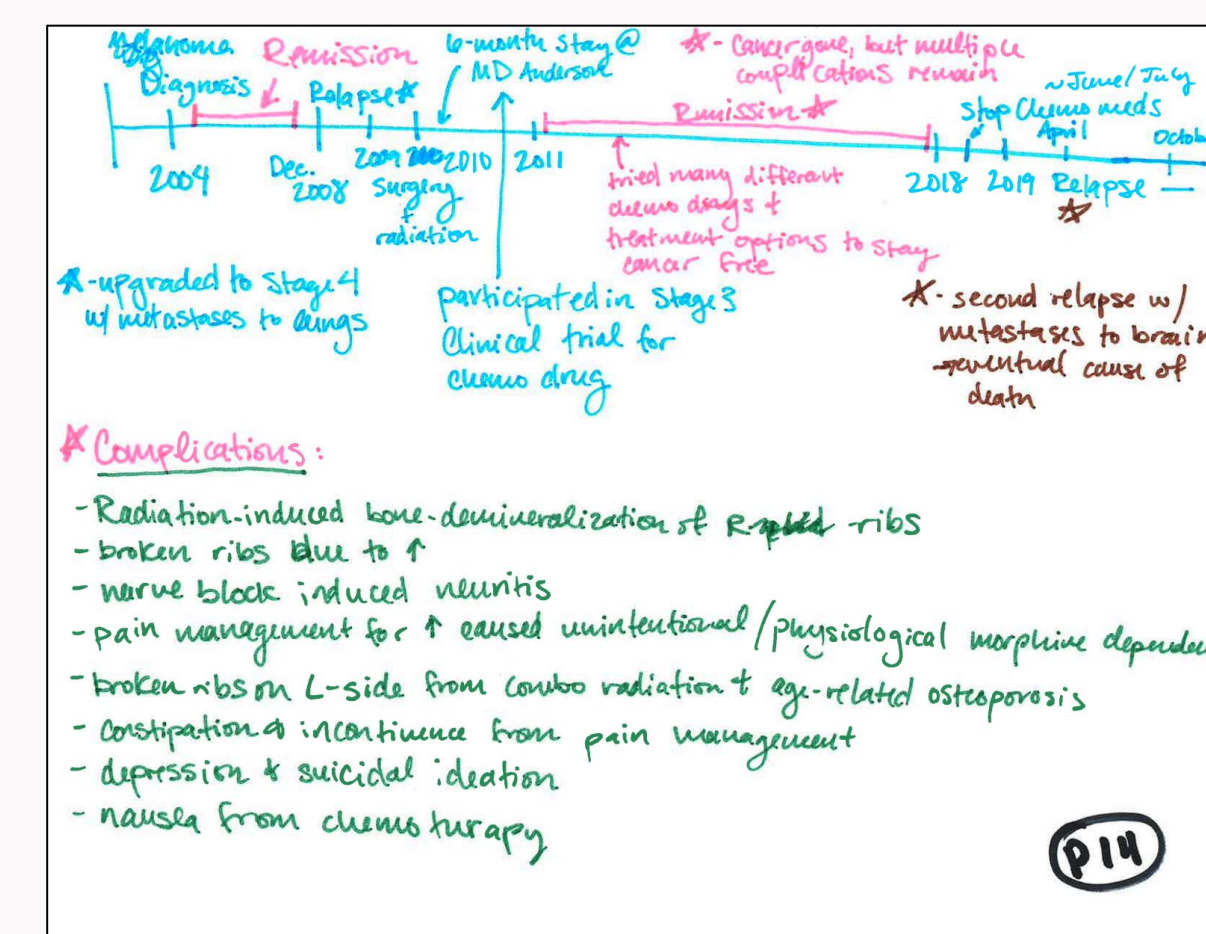 Melanoma
Diagnosis
Remission
Relapse ☆
6-month stay @
MD Anderson
☆ - Cancer gone, but multiple
complications remain
Remission ☆
~June/July
Stop Chemo meds
April
Octob
2004
Dec.
2008
2009
2010
2011
2018
2019
Relapse
☆
Surgery
+
radiation
tried many different
chemo drugs +
treatment options to stay
cancer free
☆ - upgraded to Stage 4
w/ metastases to lungs
participated in Stage 3
Clinical trial for
chemo drug
☆ - second relapse w/
metastases to brain
→eventual cause of
death
☆ Complications:
- Radiation-induced bone-demineralization of R- -ribs
- broken ribs due to ↑
- nerve block induced neuritis
- pain management for ↑ caused unintentional/physiological morphine depende
- broken ribs on L-side from combo radiation + age-related osteoporosis
- constipation & incontinence from pain management
- depression & suicidal ideation
- nausea from chemotherapy
P14